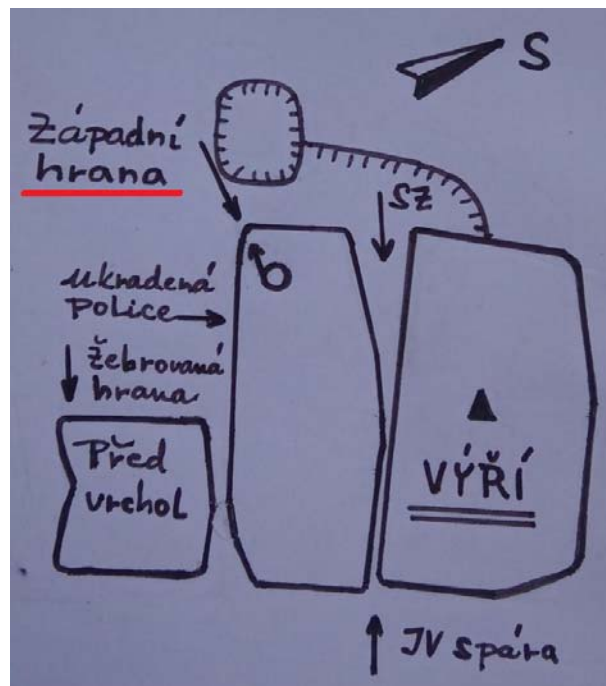 S
Západní
hrana
SZ
ukradená
police
žebrovaná
hrana
Před
vrchol
VÝŘÍ
JV spára